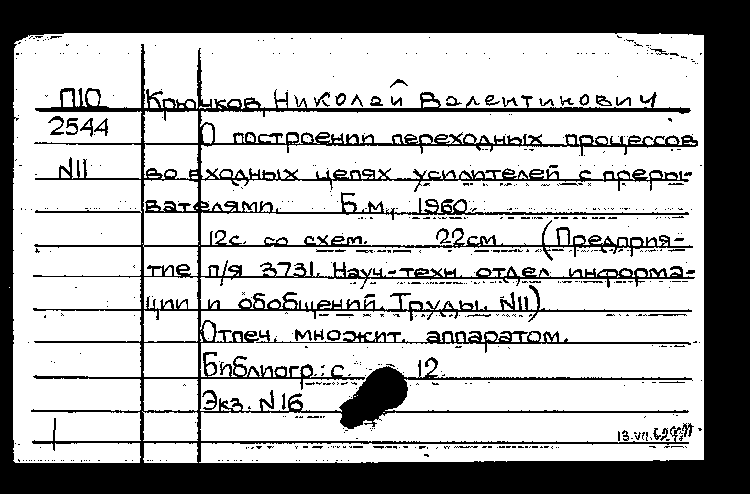 П10 Крючков, Николай Валентинович
2544 О построении переходных процессов
N11 во входных цепях усилителей с преры-
вателями. Б.м., 1960.
12с. со схем. 22см. (Предприя-
тие п/я 3731. Науч.-техн. отдел информа-
ции и обобщений. Труды. N11).
Отпеч. множит. аппаратом.
Библиогр.: с. 12.
Экз. N16
13.VII.62